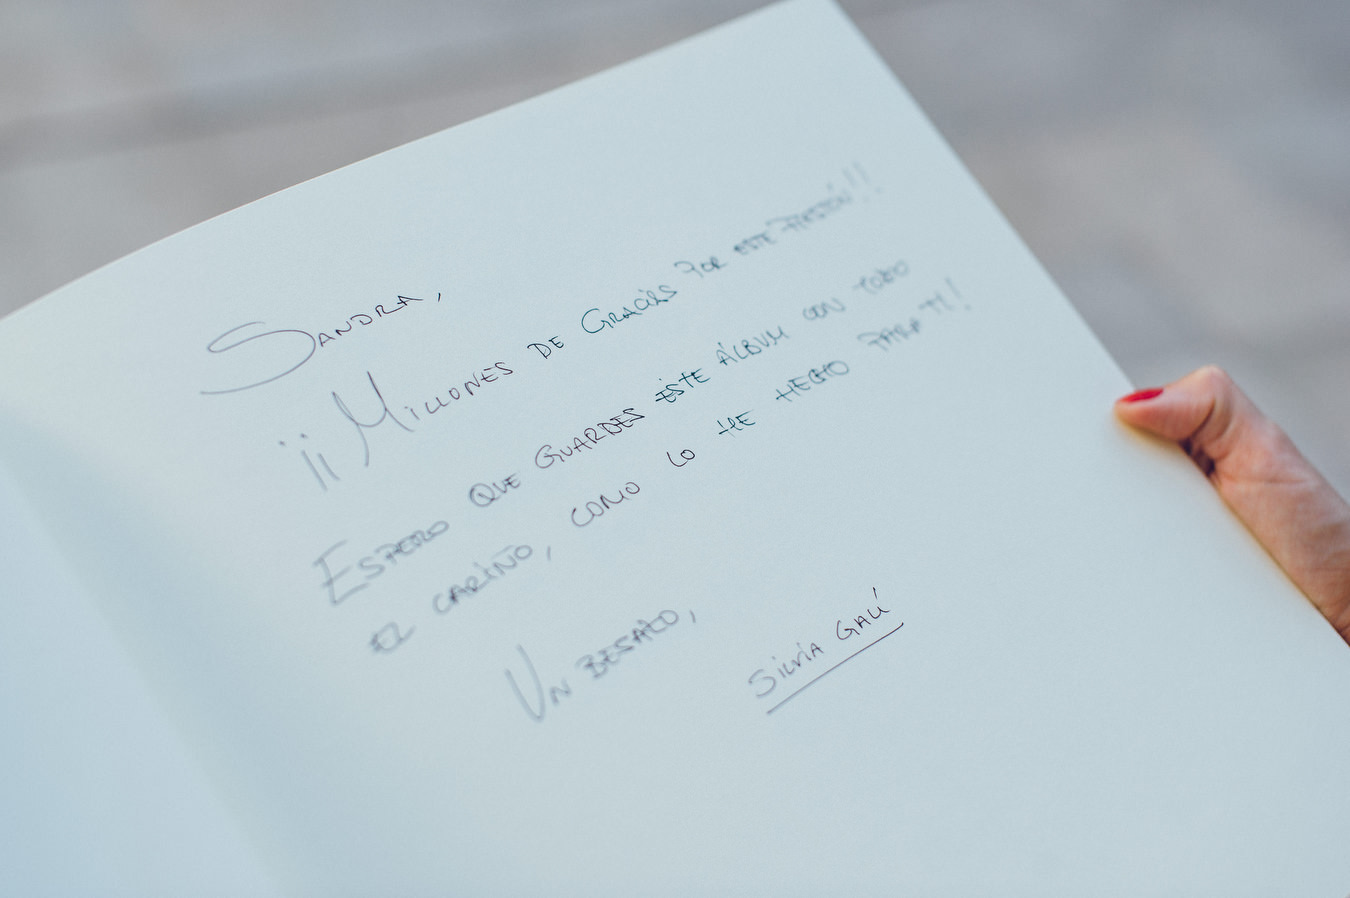 SANDRA,
¡¡MILLONES DE GRACIAS POR ESTE PASIÓN!!
ESPERO QUE GUARDES ESTE ÁLBUM CON TODO
EL CARIÑO, COMO LO HE HECHO PARA TI!
UN BESAZO,
SILVIA GALÍ